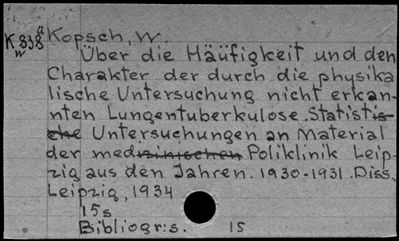 K 838 a Kopsch, W.
w
Über die Häufigkeit und den
Charakter der durch die physika
lische Untersuchung nicht erkan-
nten Lungentuberkulose. Statistis-
che Untersuchungen an Material
der medizinischen Poliklinik Leip-
zig aus den Jahren. 1930-1931. Diss.
Leipzig, 1934
15s
Bibliogr:s. 15